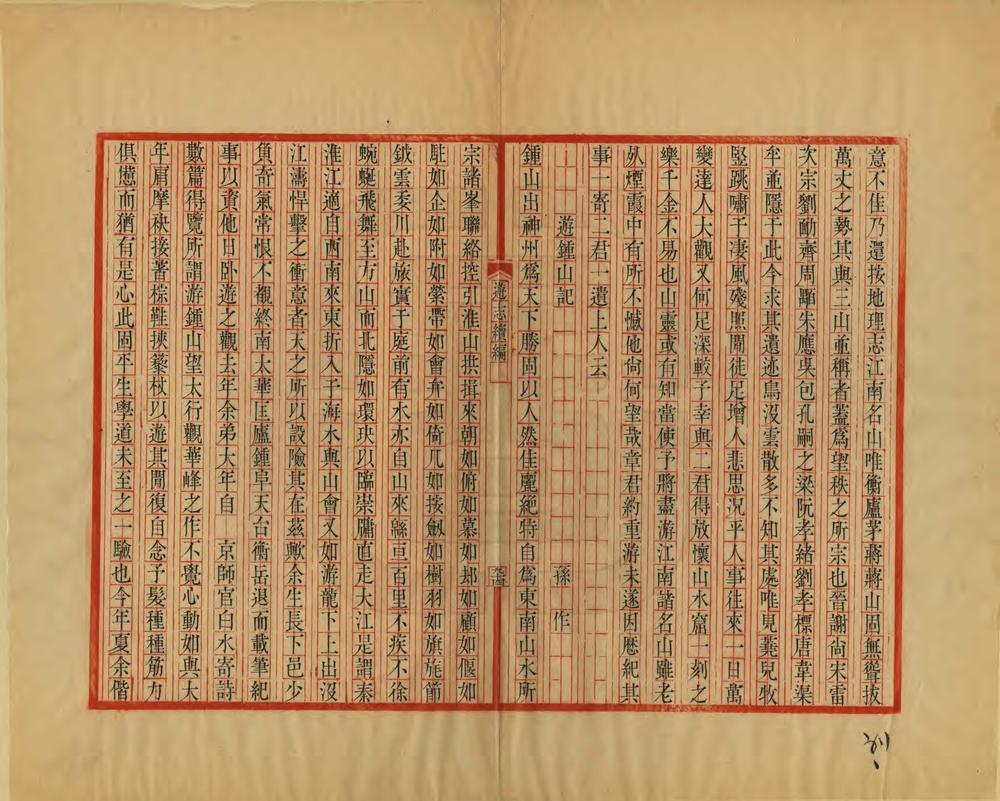 意不佳乃還按地理志江南名山唯衡廬茅蔣蔣山固無聳拔
萬丈之勢其與三山並稱者蓋爲望秩之所宗也晉謝尚宋雷
次宗劉勔齊周顒朱應吳包孔嗣之梁阮孝緒劉孝標唐韋渠
牟並隱于此今求其遺迹鳥沒雲散多不知其處唯見蕘兒牧
豎跳嘯于凄風殘照閒徒足增人悲思况乎人事往來一日萬
變達人大觀又何足深較予幸與二君得放懷山水窟一刻之
樂千金不易也山靈或有知當使予將盡游江南諸名山雖老
死煙霞中有所不憾他尚何望哉章君約重游未遂因歷紀其
事一寄二君一遺上人云
遊鍾山記 孫作
鍾山出神州爲天下勝固以人然佳麗絶特自爲東南山水所
遊志續編
宗諸峯聯絡控引淮山拱揖來朝如俯如慕如刦如顧如偃如
駐如企如附如縈帶如會弁如倚几如按劒如樹羽如旗旄節
鉞雲委川赴旅實于庭前有水亦自山來緜亘百里不疾不徐
蜿蜒飛舞至方山而北隱如環玦以臨崇墉直走大江是謂秦
淮江適自西南來東折入于海水與山會又如游龍下上出沒
江濤悍擊之衝意者天之所以設險其在茲歟余生長下邑少
負奇氣常恨不覩終南太華匡廬鍾阜天台衡岳退而載筆紀
事以資他日卧遊之觀去年余弟大年自 京師官白水寄詩
數篇得覽所謂游鍾山望太行觀華峰之作不覺心動如與大
年肩摩袂接著棕鞋挾藜杖以遊其閒復自念予髮種種筋力
俱憊而猶有是心此固平生學道未至之一驗也今年夏余偕